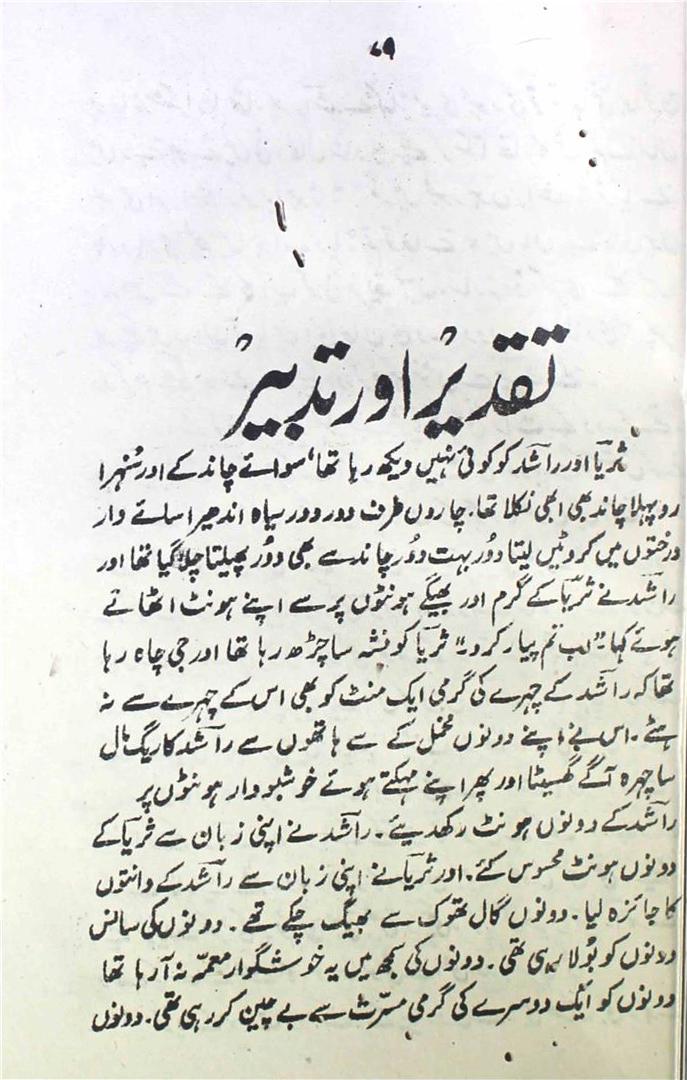 ۷۹
تقدیر اور تدبیر
ثریا اور راشد کو کوئی نہیں دیکھ رہا تھا، سوائے چاند کے اور سنہرا
روپہلا چاند بھی ابھی نکلا تھا۔ چاروں طرف دور دور سیاہ اندھیرا سائے دار
درختوں میں کروٹیں لیتا دور بہت دور چاند سے بھی دور پھیلتا چلا گیا تھا اور
راشد نے ثریا کے گرم اور بھیگے ہونٹوں پر سے اپنے ہونٹ اٹھاتے
ہوئے کہا "اب تم پیار کرو" ثریا کو نشہ سا چڑھ رہا تھا اور جی چاہ رہا
تھا کہ راشد کے چہرے کی گرمی ایک منٹ کو بھی اس کے چہرے سے نہ
ہٹے۔ اس نے اپنے دونوں مخمل کے سے ہاتھوں سے راشد کا ریگ مال
سا چہرہ آگے گھسیٹا اور پھر اپنے مہکتے ہوئے خوشبودار ہونٹوں پر
راشد کے دونوں ہونٹ رکھ دیئے۔ راشد نے اپنی زبان سے ثریا کے
دونوں ہونٹ محسوس کئے۔ اور ثریا نے اپنی زبان سے راشد کے دانتوں
کا جائزہ لیا۔ دونوں گال تھوک سے بھیگ چکے تھے۔ دونوں کی سانس
دونوں کو بولا رہی تھی۔ دونوں کی سمجھ میں یہ خوشگوار معمّہ نہ آ رہا تھا
دونوں کو ایک دوسرے کی گرمی مسرت سے بے چین کر رہی تھی۔ دونوں